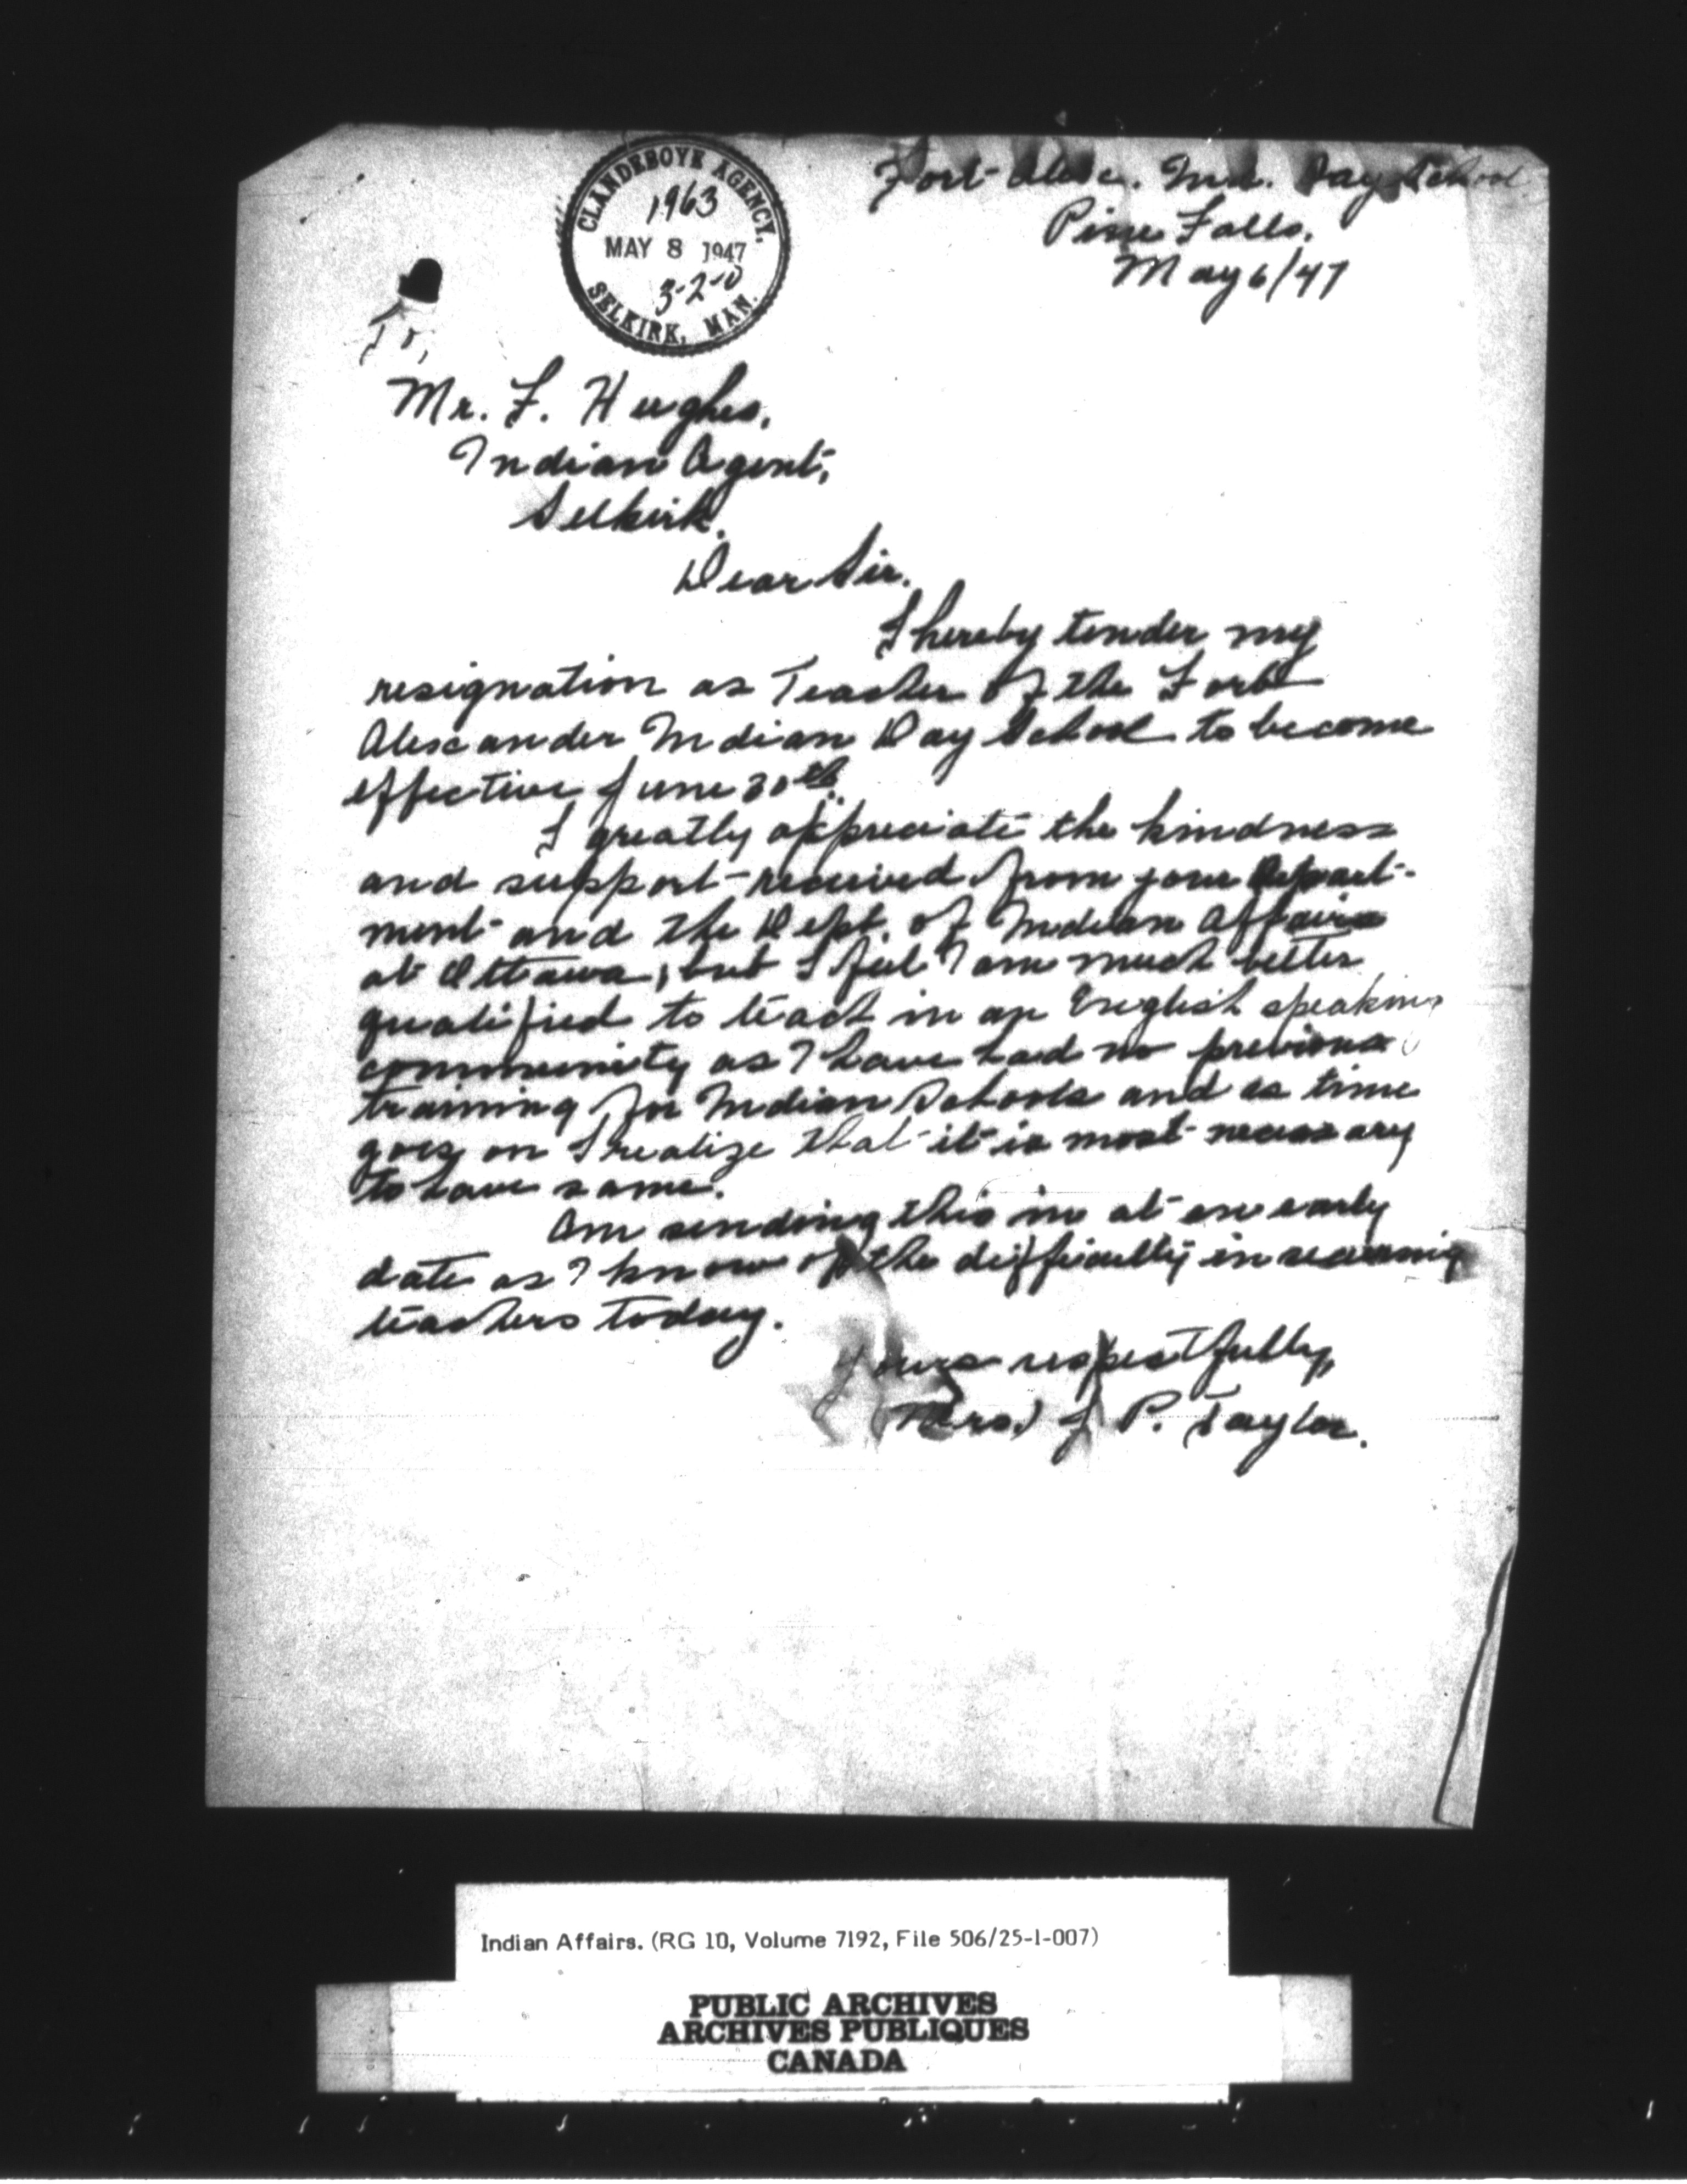 Fort Alex. Ind. Day School
Pine Falls.
May 6/47
CLANDEBOYE AGENCY.
1963
MAY 8 1947
3-2-10
SELKIRK, MAN.
To,
Mr. F. Hughes,
Indian Agent,
Selkirk.
Dear Sir.
I hereby tender my
resignation as Teacher of the Fort
Alexander Indian Day School to become
effective June 30th.
I greatly appreciate the kindness
and support received from your Depart-
ment and the Dept. of Indian Affairs
at Ottawa, but I feel I am much better
qualified to teach in an English speaking
community as I have had no previous
training for Indian Schools and as time
goes on I realize that it is most necessary
to have same.
Am sending this in at an early
date as I know of the difficulty in securing
teachers today.
Yours respectfully,
(Mrs.) J. P. Taylor.
Indian Affairs. (RG 10, Volume 7192, File 506/25-1-007)
PUBLIC ARCHIVES
ARCHIVES PUBLIQUES
CANADA